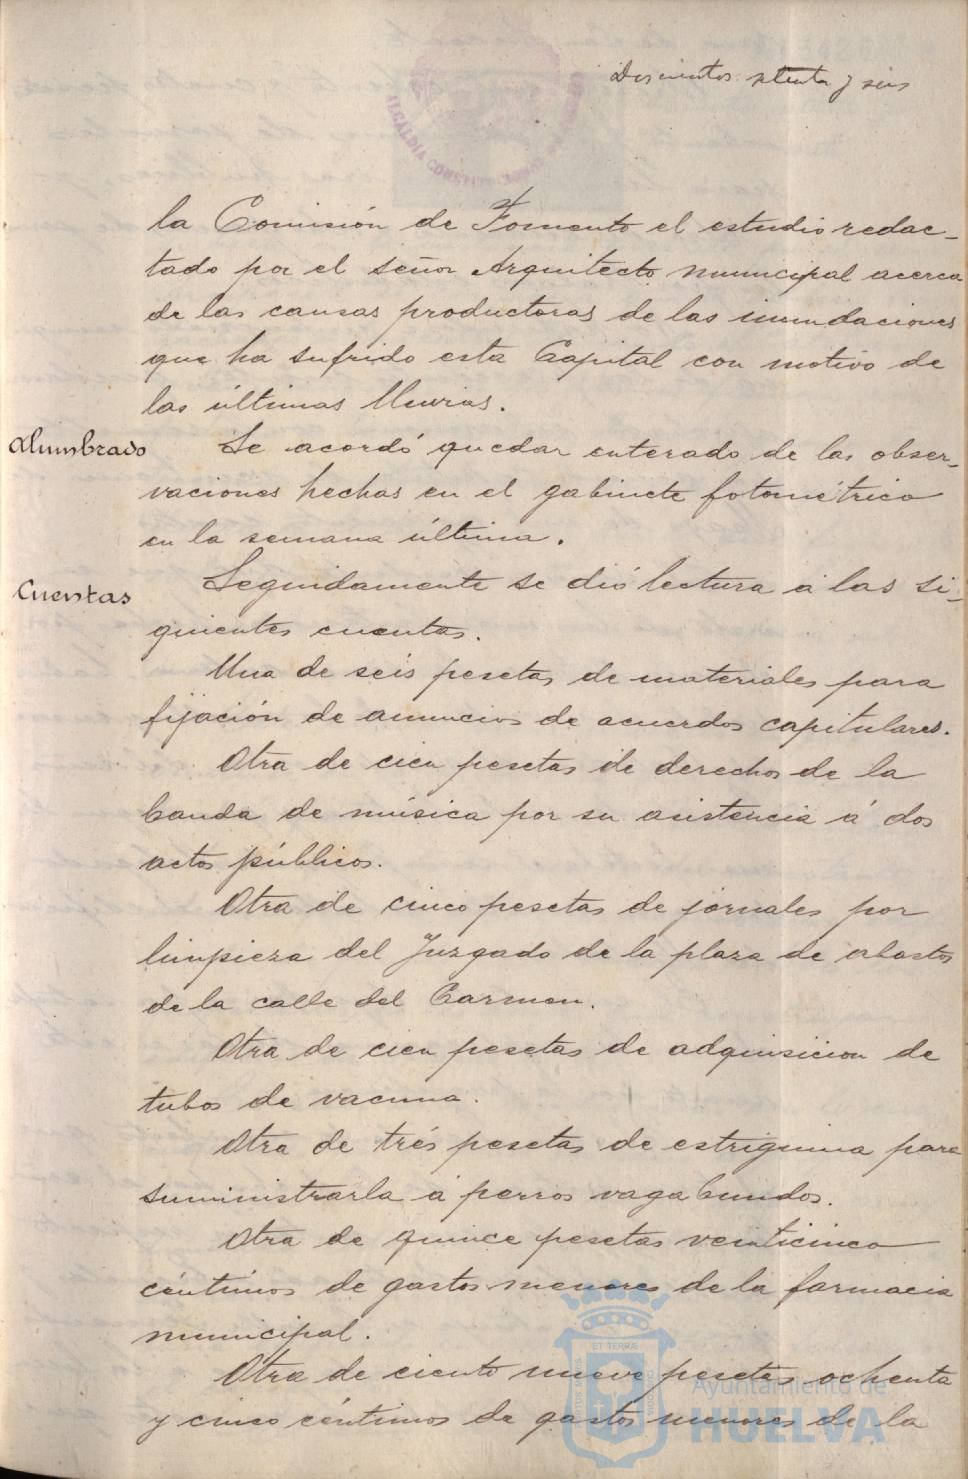 Doscientos setenta y seis
la Comisión de Fomento el estudio redac-
tado por el señor Arquitecto municipal acerca
de las causas productoras de las inundaciones
que ha sufrido esta Capital con motivo de
las últimas lluvias.
Alumbrado
Se acordó quedar enterado de las obser-
vaciones hechas en el gabinete fotométrico
en la semana última.
Cuentas
Seguidamente se dió lectura á las si-
guientes cuentas.
Una de seis pesetas de materiales para
fijación de anuncios de acuerdos capitulares.
Otra de cien pesetas de derechos de la
banda de música por su asistencia á dos
actos públicos.
Otra de cinco pesetas de jornales por
limpieza del Juzgado de la plaza de abastos
de la calle del Carmen.
Otra de cien pesetas de adquisicion de
tubos de vacuna.
Otra de trés pesetas de estrignina para
suministrarla á perros vagabundos.
Otra de quince pesetas veinticinco
céntimos de gastos menores de la farmacia
municipal.
Otra de ciento nueve pesetas ochenta
y cinco céntimos de gastos menores de la
Ayuntamiento de
HUELVA